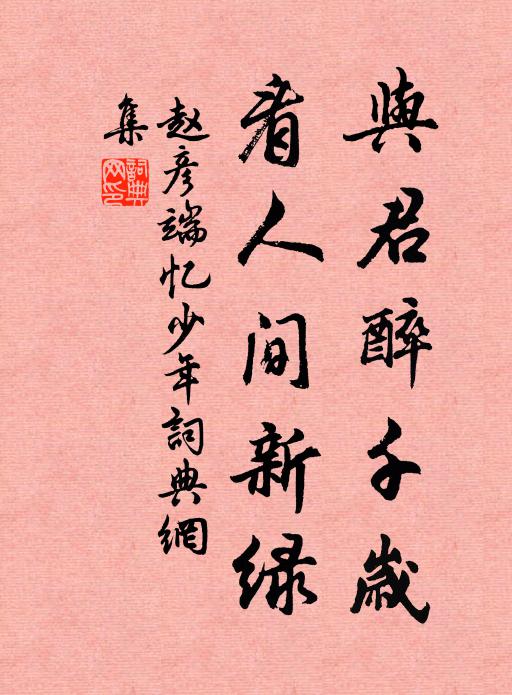 與君醉千歲
看人間新綠
赵彦端忆少年詞典網
集
詞典網印